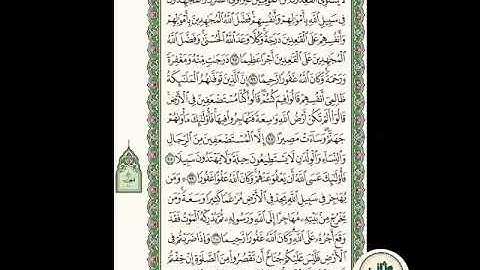 لَّا يَسْتَوِى ٱلْقَٰعِدُونَ مِنَ ٱلْمُؤْمِنِينَ غَيْرُ أُو۟لِى ٱلضَّرَرِ وَٱلْمُجَٰهِدُونَ
فِى سَبِيلِ ٱللَّهِ بِأَمْوَٰلِهِمْ وَأَنفُسِهِمْ فَضَّلَ ٱللَّهُ ٱلْمُجَٰهِدِينَ بِأَمْوَٰلِهِمْ
وَأَنفُسِهِمْ عَلَى ٱلْقَٰعِدِينَ دَرَجَةً وَكُلًّا وَعَدَ ٱللَّهُ ٱلْحُسْنَىٰ وَفَضَّلَ ٱللَّهُ
ٱلْمُجَٰهِدِينَ عَلَى ٱلْقَٰعِدِينَ أَجْرًا عَظِيمًا ٩٥ دَرَجَٰتٍ مِّنْهُ وَمَغْفِرَةً
وَرَحْمَةً وَكَانَ ٱللَّهُ غَفُورًا رَّحِيمًا ٩٦ إِنَّ ٱلَّذِينَ تَوَفَّىٰهُمُ ٱلْمَلَٰٓئِكَةُ
ظَالِمِىٓ أَنفُسِهِمْ قَالُوا۟ فِيمَ كُنتُمْ قَالُوا۟ كُنَّا مُسْتَضْعَفِينَ فِى ٱلْأَرْضِ
قَالُوٓا۟ أَلَمْ تَكُنْ أَرْضُ ٱللَّهِ وَٰسِعَةً فَتُهَاجِرُوا۟ فِيهَا فَأُو۟لَٰٓئِكَ مَأْوَىٰهُمْ
جَهَنَّمُ وَسَآءَتْ مَصِيرًا ٩٧ إِلَّا ٱلْمُسْتَضْعَفِينَ مِنَ ٱلرِّجَالِ
وَٱلنِّسَآءِ وَٱلْوِلْدَٰنِ لَا يَسْتَطِيعُونَ حِيلَةً وَلَا يَهْتَدُونَ سَبِيلًا ٩٨
فَأُو۟لَٰٓئِكَ عَسَى ٱللَّهُ أَن يَعْفُوَ عَنْهُمْ وَكَانَ ٱللَّهُ عَفُوًّا غَفُورًا ٩٩ وَمَن
يُهَاجِرْ فِى سَبِيلِ ٱللَّهِ يَجِدْ فِى ٱلْأَرْضِ مُرَٰغَمًا كَثِيرًا وَسَعَةً وَمَن
يَخْرُجْ مِنۢ بَيْتِهِۦ مُهَاجِرًا إِلَى ٱللَّهِ وَرَسُولِهِۦ ثُمَّ يُدْرِكْهُ ٱلْمَوْتُ فَقَدْ
وَقَعَ أَجْرُهُۥ عَلَى ٱللَّهِ وَكَانَ ٱللَّهُ غَفُورًا رَّحِيمًا ١٠٠ وَإِذَا ضَرَبْتُمْ فِى
ٱلْأَرْضِ فَلَيْسَ عَلَيْكُمْ جُنَاحٌ أَن تَقْصُرُوا۟ مِنَ ٱلصَّلَوٰةِ إِنْ خِفْتُمْ